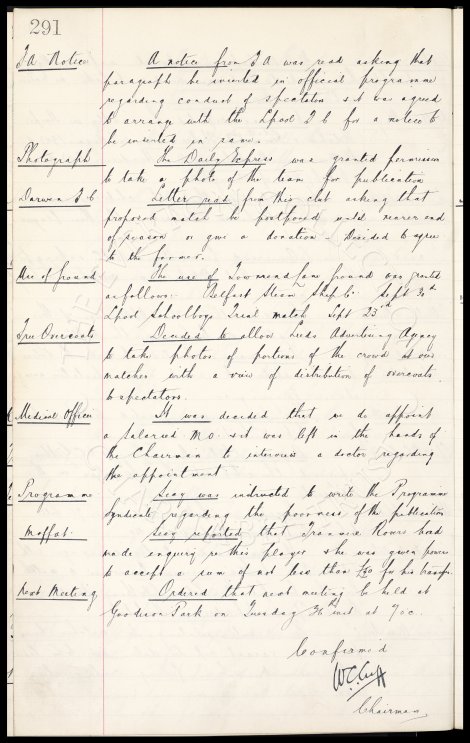 291
F.A. Notice
A notice from F A was read asking that
paragraph be inserted in official programme
regarding conduct of spectators & it was agreed
to arrange with the Lpool F C for a notice to
be inserted in same.
Photograph
The Daily Express was granted permission
to take a photo of the team for publication
Darwen F C
Letter read from this club asking that
proposed match be postponed until nearer end
of season or give a donation - Decided to agree
to the former.
Use of Ground
The use of Townsend Lane ground was granted
as follows:- Belfast Steam Ship Co. Sept 30th
Lpool Schoolboys Trial match Sept 23rd
Free Overcoats
Decided to allow Leeds Advertising Agency
to take photos of portions of the crowd at our
matches with a view of distribution of overcoats
to spectators.
Medical Officer
It was decided that we do appoint
a salaried M.O. & it was left in the hands of
the Chairman to interview a doctor regarding
the appointment.
Programme
Secy was instructed to write the Programme
Syndicate regarding the poorness of the publication
Moffat.
Secy reported that Tranmere Rovers had
made enquiry re this player & he was given power
to accept a sum of not less than for his transfer.
Next Meeting
Ordered that next meeting be held at
Goodison Park on Tuesday inst at 7 o.c.
Confirmed
W.C. Cuff
Chairman